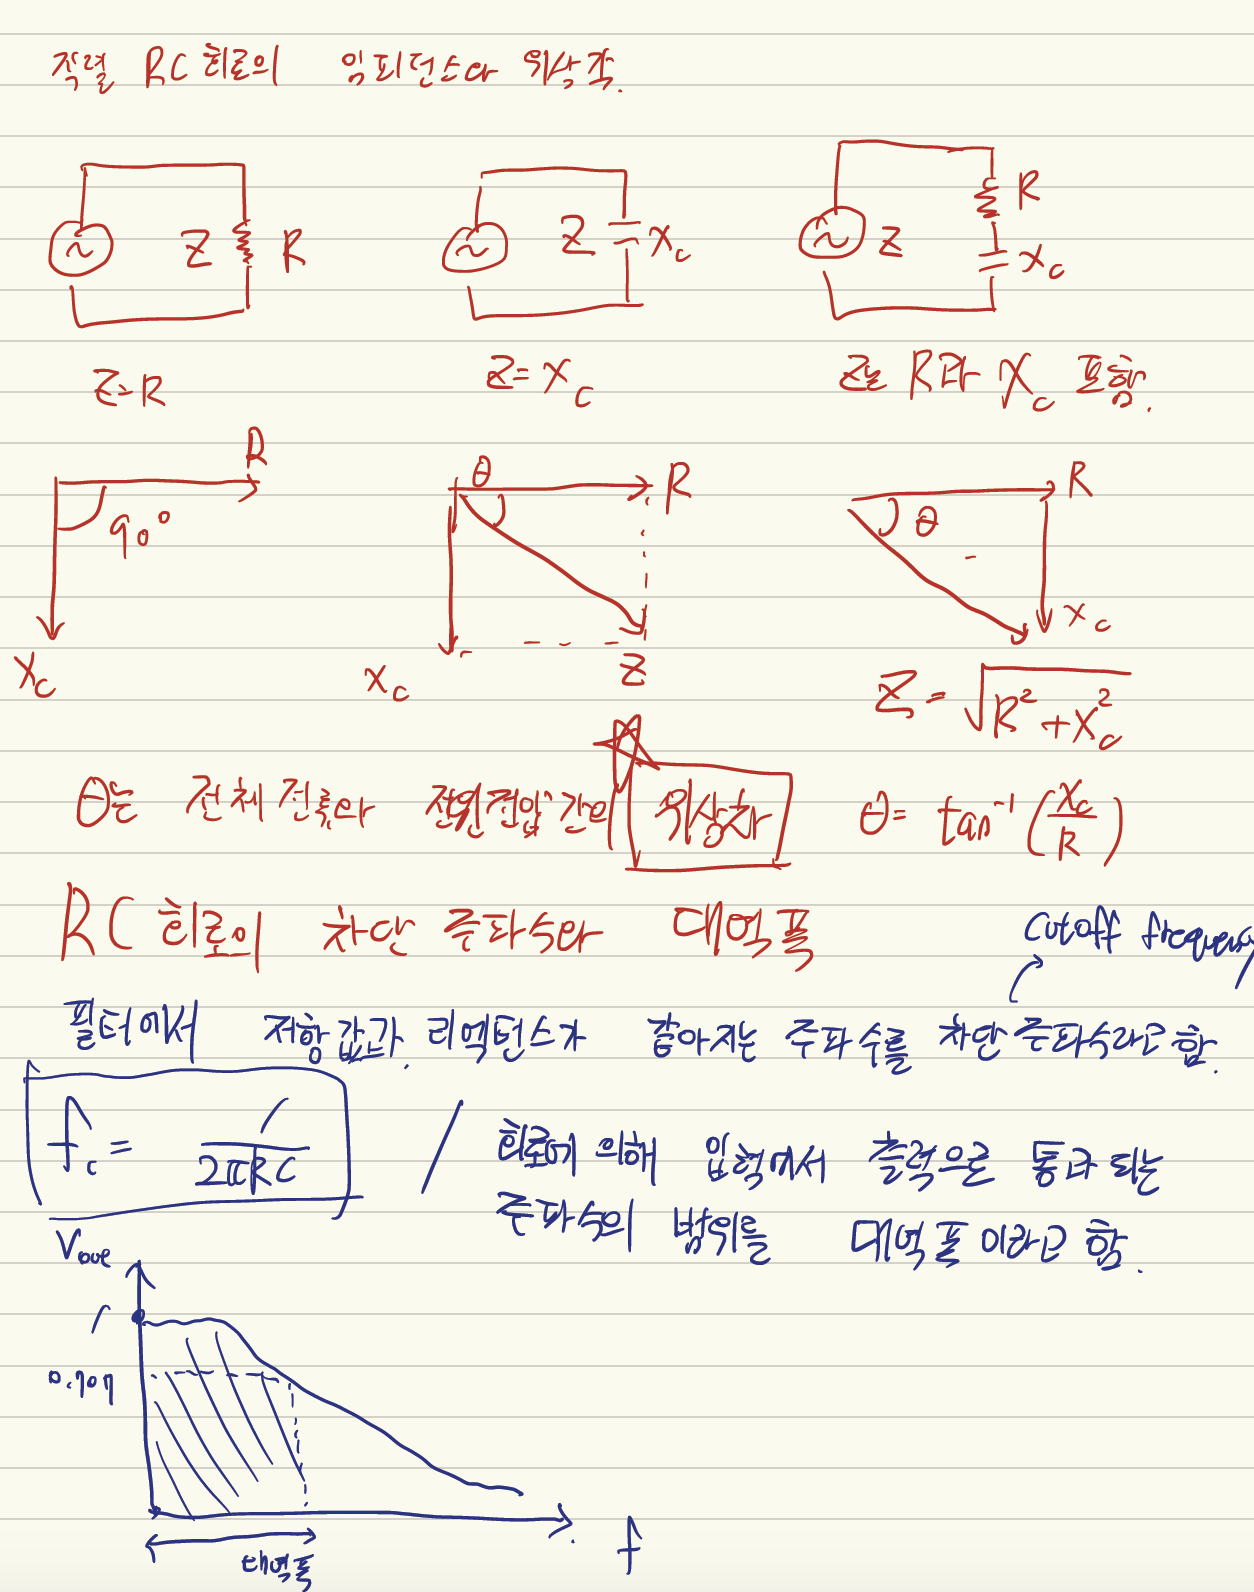 직렬 RC 회로의 임피던스와 위상각.
Z R Z Xc Z R Xc
Z=R Z=Xc Z는 R과 Xc 포함.
R 90° Xc
θ R Xc Z
R θ Xc
Z = √R²+Xc²
θ는 전체 전류와 전원전압 간의 위상차 θ= tan⁻¹(Xc/R)
RC 회로의 차단 주파수와 대역폭
Cutoff frequency
필터에서 저항 값과 리액턴스가 같아지는 주파수를 차단 주파수라고 함.
fc = 1/2πRC
회로에 의해 입력에서 출력으로 통과 되는
주파수의 범위를 대역폭 이라고 함.
Vout
1
0.707
f
대역폭